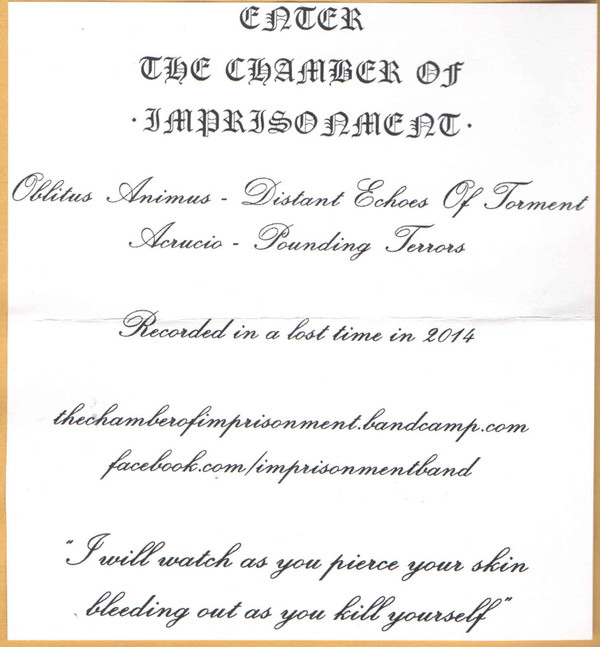 ENTER
THE CHAMBER OF
·IMPRISONMENT·
Oblitus Animus - Distant Echoes Of Torment
Acrucio - Pounding Terrors
Recorded in a lost time in 2014
thechamberofimprisonment.bandcamp.com
facebook.com/imprisonmentband
"I will watch as you pierce your skin
bleeding out as you kill yourself"